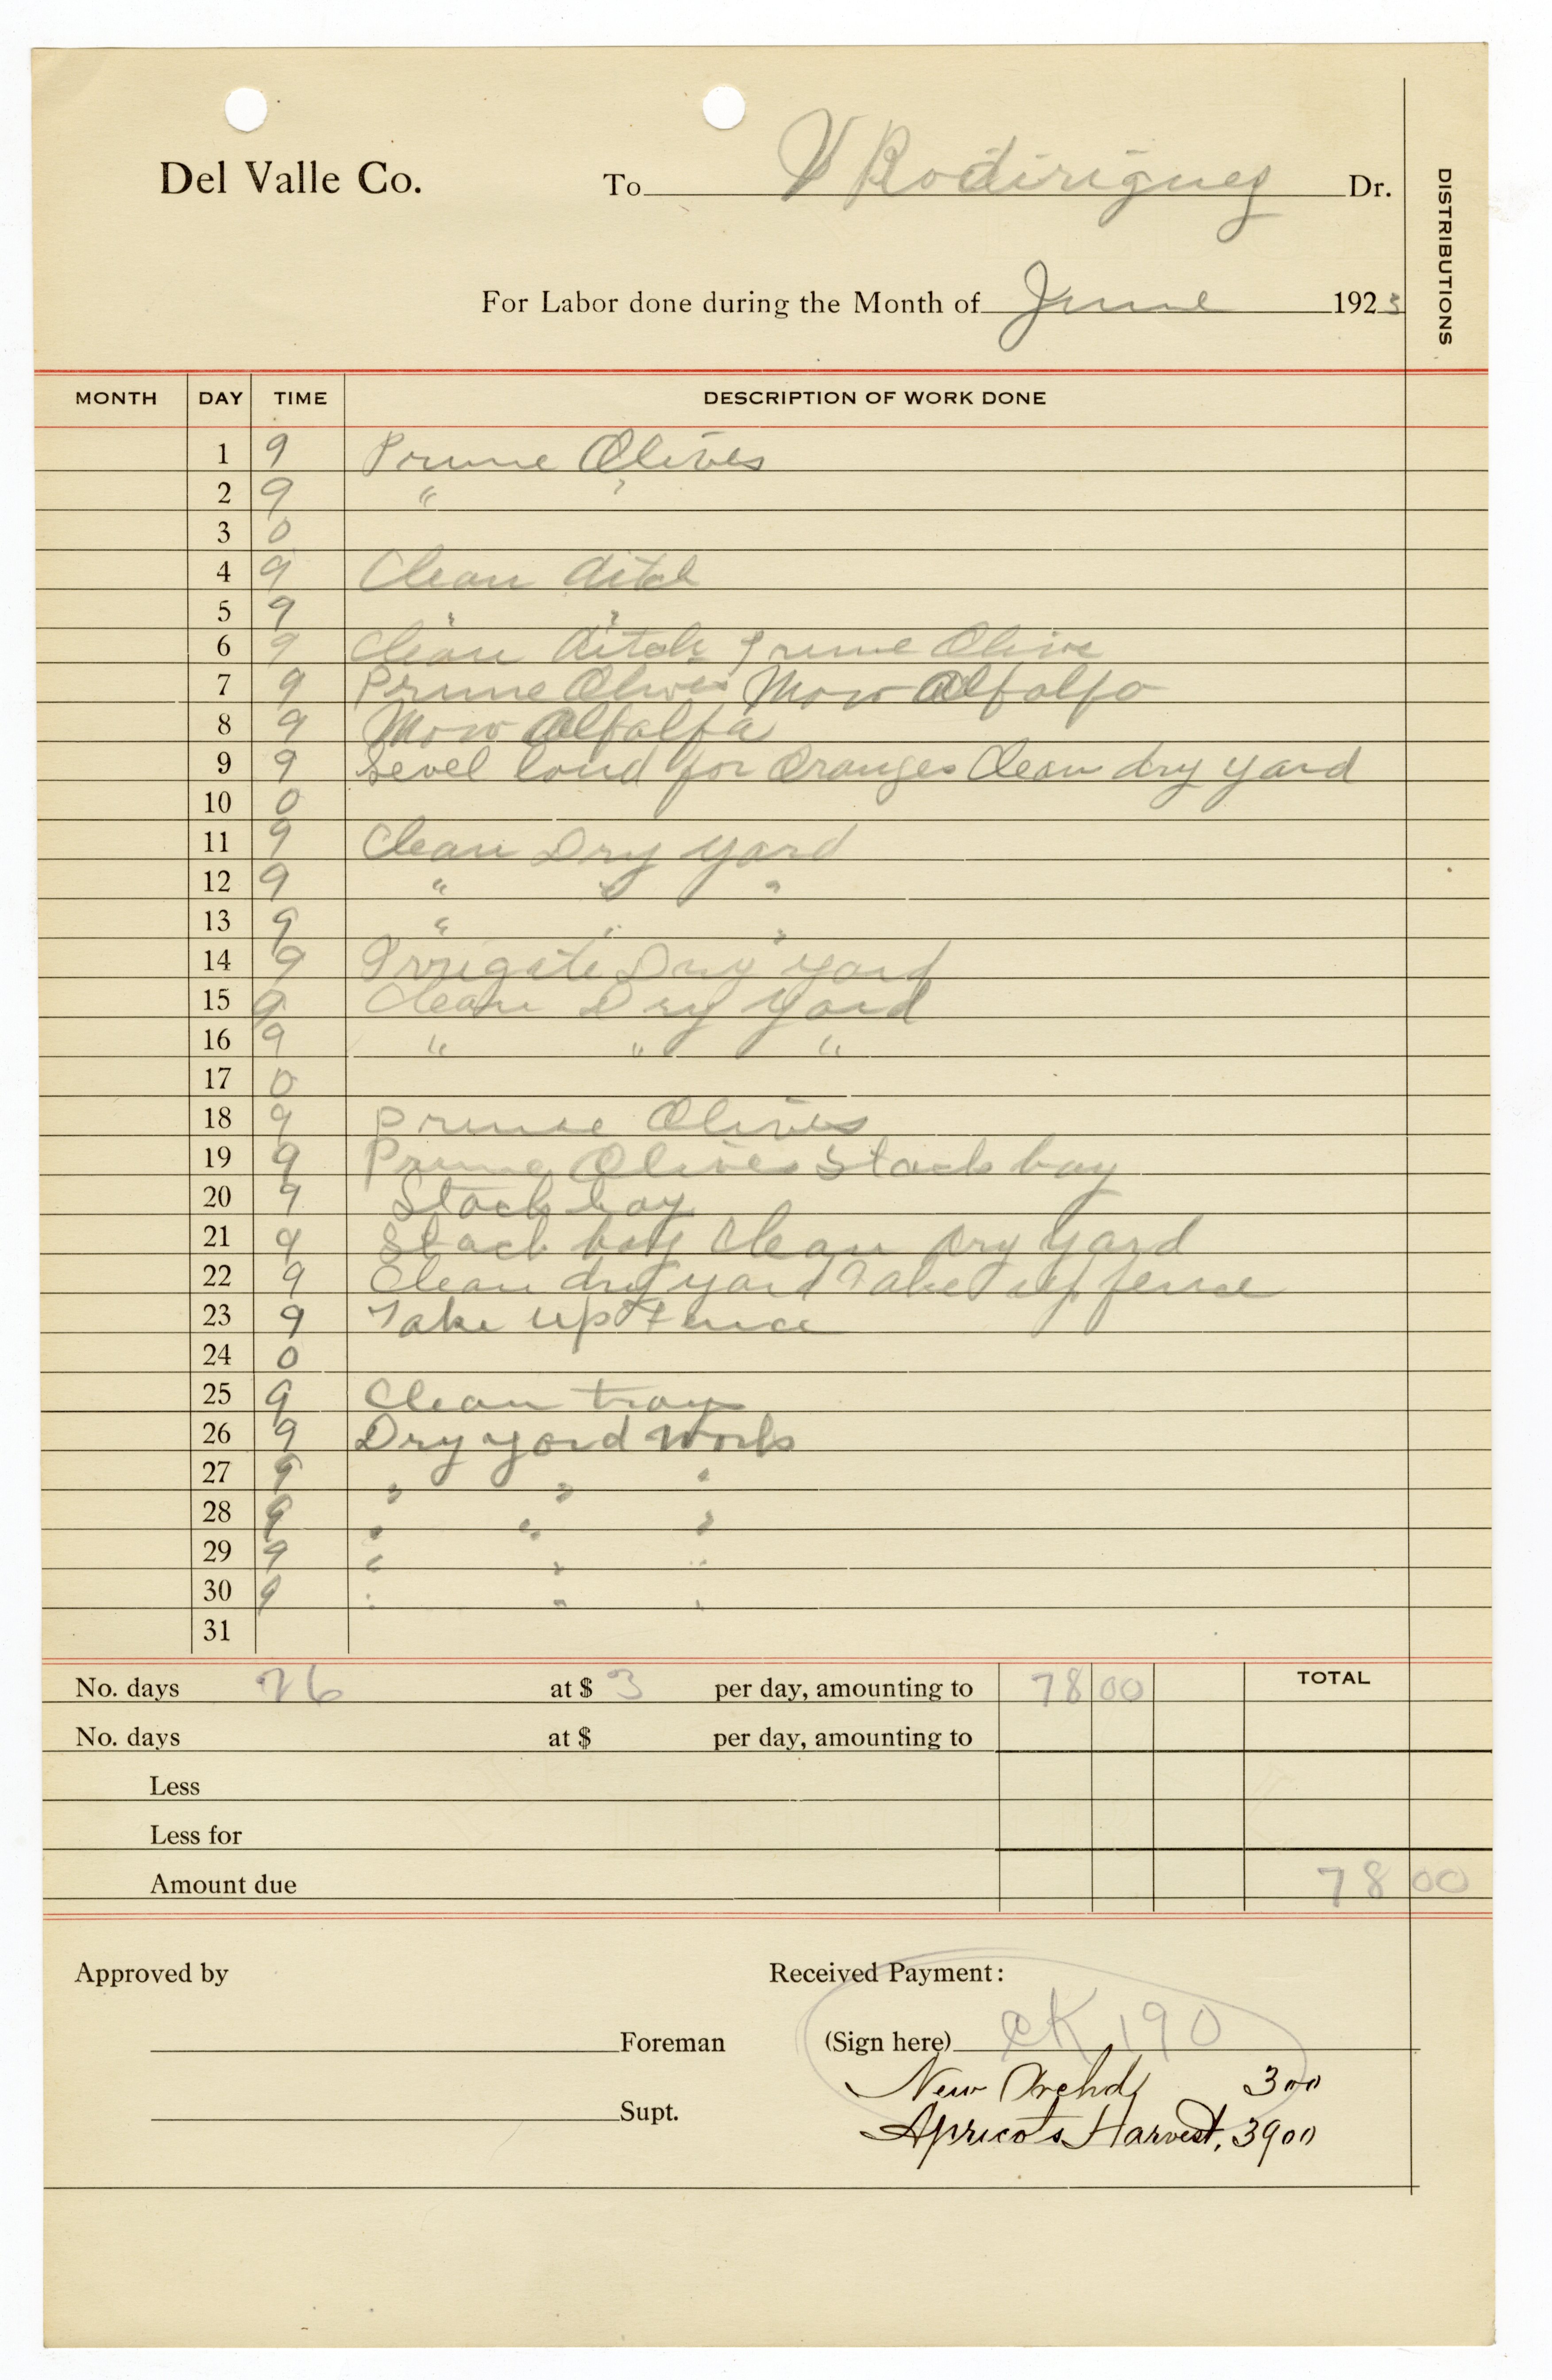 Del Valle Co. To V Rodirigues Dr.
DISTRIBUTIONS
For Labor done during the Month of June 1923
MONTH DAY TIME DESCRIPTION OF WORK DONE
1 9 Prune Olives
2 9 " "
3 0
4 9 Clean ditch
5 9 " "
6 9 Clean ditch Prune Olive
7 9 Prune Olives Mow Alfalfa
8 9 Mow Alfalfa
9 9 Level land for Oranges Clean dry yard
10 0
11 9 Clean Dry yard
12 9 " " "
13 9 " " "
14 9 Irrigate Dry yard
15 9 Clean Dry yard
16 9 " " "
17 0
18 9 Prune Olives
19 9 Prune Olives Stack hay
20 9 Stack hay
21 9 Stack hay Clean Dry yard
22 9 Clean dry yard Take up fence
23 9 Take up Fence
24 0
25 9 Clean trays
26 9 Dry yard Work
27 9 " " "
28 9 " " "
29 9 " " "
30 9 " " "
31
No. days 26 at $ 3 per day, amounting to 78 00 TOTAL
No. days at $ per day, amounting to
Less
Less for
Amount due 78 00
Approved by Received Payment:
Foreman (Sign here) CK 190
New Orchd, 3 00
Supt.
Apricots Harvest, 39 00